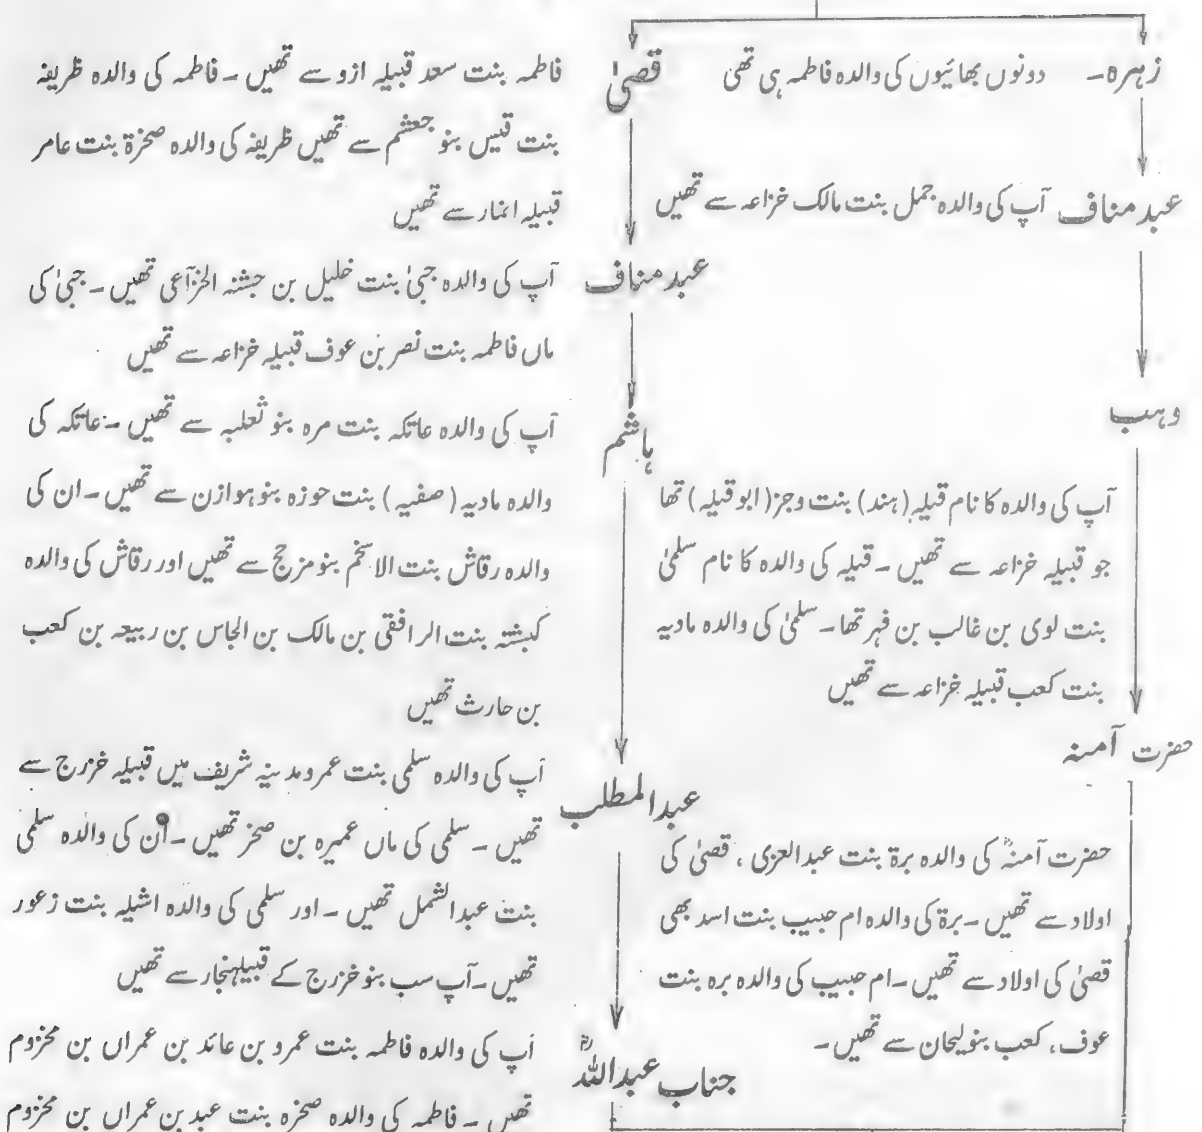 زہرہ۔ دونوں بھائیوں کی والدہ فاطمہ ہی تھی
عبد مناف آپ کی والدہ جمل بنت مالک خزاعہ سے تھیں
وہب
آپ کی والدہ کا نام قیلہ (ہند) بنت وجز (ابو قیلہ) تھا
جو قبیلہ خزاعہ سے تھیں ۔ قیلہ کی والدہ کا نام سلمیٰ
بنت لوی بن غالب بن فہر تھا۔ سلمیٰ کی والدہ مادیہ
بنت کعب قبیلہ خزاعہ سے تھیں
حضرت آمنہ
حضرت آمنہؓ کی والدہ برۃ بنت عبدالعزی ، قصیٰ کی
اولاد سے تھیں ۔ برۃ کی والدہ ام حبیب بنت اسد بھی
قصیٰ کی اولاد سے تھیں ۔ ام حبیب کی والدہ برہ بنت
عوف، کعب بنولیحان سے تھیں ۔
قصیٰ
عبد مناف
ہاشم
عبدالمطلب
جناب عبداللہؓ
فاطمہ بنت سعد قبیلہ ازو سے تھیں ۔ فاطمہ کی والدہ ظریفہ
بنت قیس بنو جعشم سے تھیں ظریفہ کی والدہ صخرۃ بنت عامر
قبیلہ انمار سے تھیں
آپ کی والدہ جبیٰ بنت خلیل بن حبشنہ الخزآعی تھیں ۔ جبیٰ کی
ماں فاطمہ بنت نصر بن عوف قبیلہ خزاعہ سے تھیں
آپ کی والدہ عاتکہ بنت مرہ بنو ثعلبہ سے تھیں ۔ عاتکہ کی
والدہ مادیہ (صفیہ) بنت حوزہ بنو ہوازن سے تھیں ۔ ان کی
والدہ رقاش بنت الاسخم بنو مزحج سے تھیں اور رقاش کی والدہ
کبشتہ بنت الرافقی بن مالک بن الجاس بن ربیعہ بن کعب
بن حارث تھیں
آپ کی والدہ سلمی بنت عمرو مدینہ شریف میں قبیلہ خزرج سے
تھیں ۔ سلمی کی ماں عمیرہ بن صخر تھیں ۔ ان کی والدہ سلمی
بنت عبدالشمل تھیں ۔ اور سلمی کی والدہ اشیلہ بنت زعور
تھیں ۔ آپ سب بنو خزرج کے قبیلہنجار سے تھیں
آپ کی والدہ فاطمہ بنت عمرو بن عائد بن عمراں بن مخزوم
تھیں ۔ فاطمہ کی والدہ صخرہ بنت عبد بن عمراں بن مخزوم